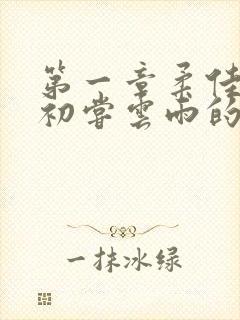 第一章柔佳
初尝雲雨的
一抹冰绿